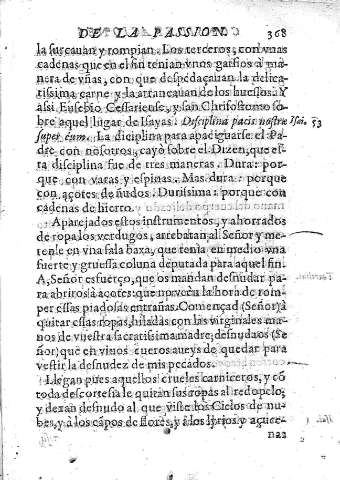 DE LA PASSION. 368
la surcauan y rompian. Los terceros, con vnas
cadenas que en el fin tenian vnos garfios a ma
nera de vñas, con que despedaçauan la delica-
tissima carne y la arrancauan de los huessos. Y
assi Eusebio Cesariense, y san Chrisostomo so-
bre aquel lugar de Isayas. Disciplina pacis nostræ Isai. 53
super eum. La diciplina para apaciguarse el Pa-
dre con nosotros, cayò sobre el Dizen, que es-
ta disciplina fue de tres maneras. Dura: por-
que con varas y espinas. Mas dura: porque
con açotes de ñudos. Durissima: porque con
cadenas de hierro.
Aparejados estos instrumentos, y ahorrados
de ropa los verdugos, arrebatan al Señor y me-
tenle en vna sala baxa, que tenia en medio vna
fuerte y gruessa coluna deputada para aquel fin.
A, Señor esfuerço, que os mandan desnudar pa-
ra abriros à açotes: que no veo la hora de rom-
per essas piadosas entrañas. Començad (Señor) à
quitar essas ropas, hiladas con las virginales ma-
nos de vuestra sacratissima madre, desnudaos (Se
ñor) que en viuos cueros aueys de quedar para
vestir la desnudez de mis pecados.
Llegan pues aquellos crueles carniceros, y cõ
toda descortesia le quitan sus ropas al redopelo,
y dexan desnudo al que viste los Cielos de nu-
bes, y à los cãpos de flores, y à los lyrios y açuce-
nas